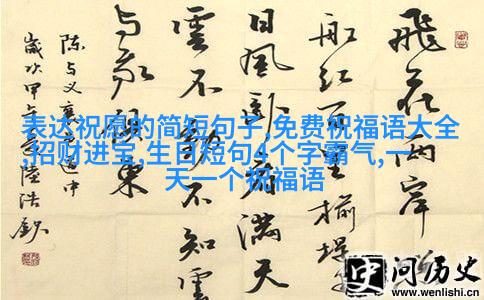 飛花两岸
船红百里榆堤
日風卧看满天
雲不動不知雲
与我俱東
陈与义襄邑道中
歲次甲午年陸浩
表达祝愿的简短句子,免费祝福语大全
,招财进宝,生日短句4个字霸气,一
天一个祝福语
史问历史
www.wenlishi.cn